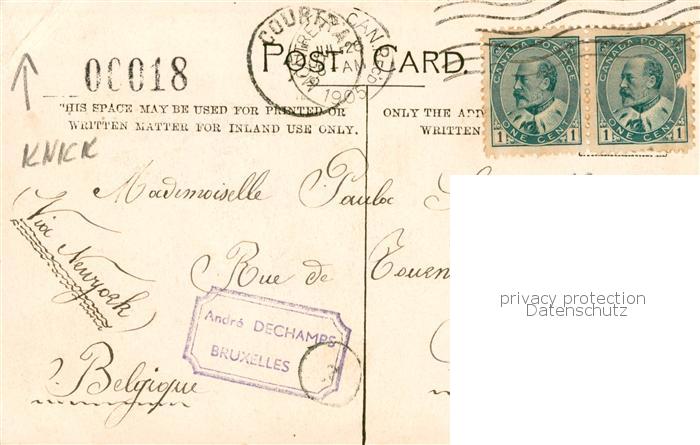 00018
POST CARD.
COURTRAI
MONTREAL CANADA
JUL 26
AM
1905
CANADA POSTAGE CANADA POSTAGE
1 ONE CENT 1 1 ONE CENT 1
THIS SPACE MAY BE USED FOR PRINTED OR
WRITTEN MATTER FOR INLAND USE ONLY.
ONLY THE ADD
WRITTEN
KNICK
Mademoiselle Paula
(Via Newyork)
Rue de Tourn
André DECHAMPS
BRUXELLES
Belgique
privacy protection
Datenschutz